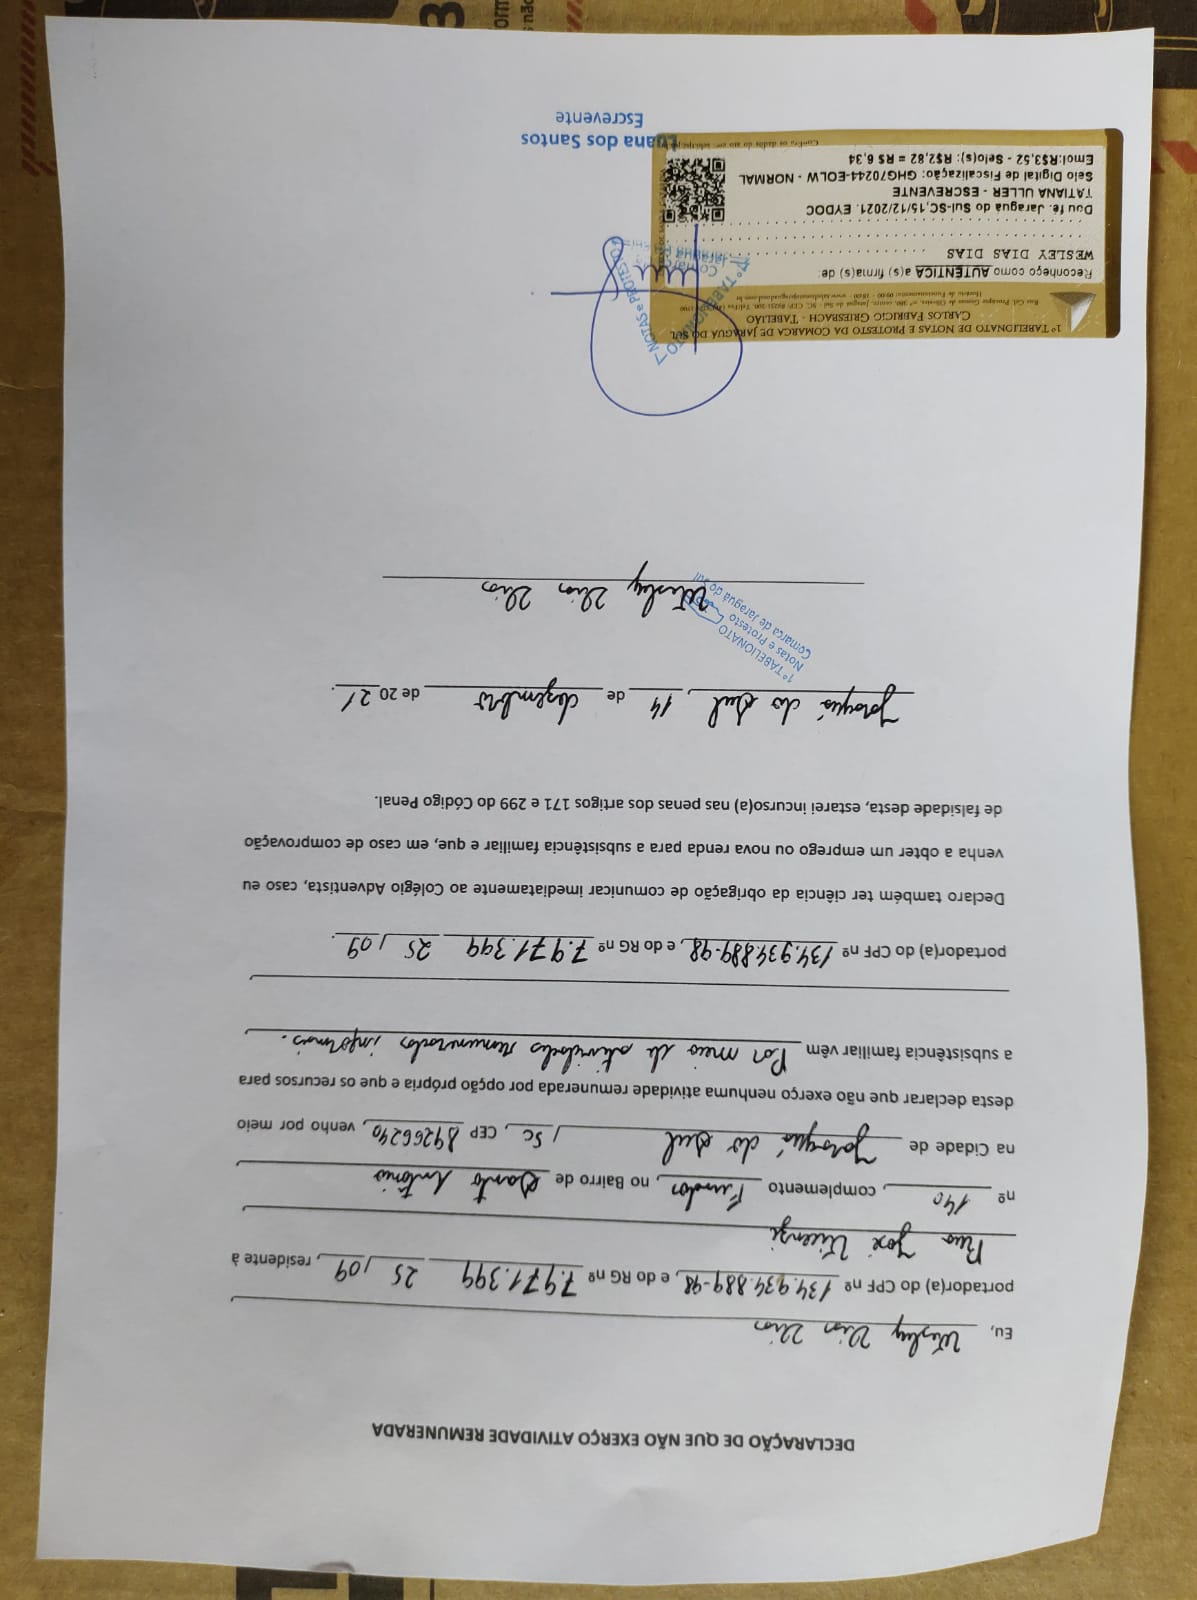 DECLARAÇÃO DE QUE NÃO EXERÇO ATIVIDADE REMUNERADA
Eu, Wesley Dias Dias
portador(a) do CPF nº 134.934.889-98, e do RG nº 7.971.399 25 / 09, residente à
Rua José Vicenzi
nº 140, complemento Fundos, no Bairro de Santo Antônio
na Cidade de Jaraguá do Sul / SC, CEP 89266240, venho por meio
desta declarar que não exerço nenhuma atividade remunerada por opção própria e que os recursos para
a subsistência familiar vêm Por meio de atividades remuneradas informais.
portador(a) do CPF nº 134.934.889-98, e do RG nº 7.971.399 25 / 09.
Declaro também ter ciência da obrigação de comunicar imediatamente ao Colégio Adventista, caso eu
venha a obter um emprego ou nova renda para a subsistência familiar e que, em caso de comprovação
de falsidade desta, estarei incurso(a) nas penas dos artigos 171 e 299 do Código Penal.
Jaraguá do Sul, 14 de dezembro de 2021.
1º TABELIONATO
Notas e Protesto
Comarca de Jaraguá do Sul
Wesley Dias Dias
1º TABELIONATO DE NOTAS E PROTESTO DA COMARCA DE JARAGUÁ DO SUL
CARLOS FABRICIO GRIESBACH - TABELIÃO
Reconheço como AUTÊNTICA a(s) firma(s) de:
WESLEY DIAS DIAS
Dou fé. Jaraguá do Sul-SC, 15/12/2021. EYDOC
TATIANA ULLER - ESCREVENTE
Selo Digital de Fiscalização: GHG70244-EOLW - NORMAL
Emol:R$3,52 - Selo(s): R$2,82 = R$ 6,34
1º TABELIONATO
NOTAS e PROTESTO
Luana dos Santos
Escrevente